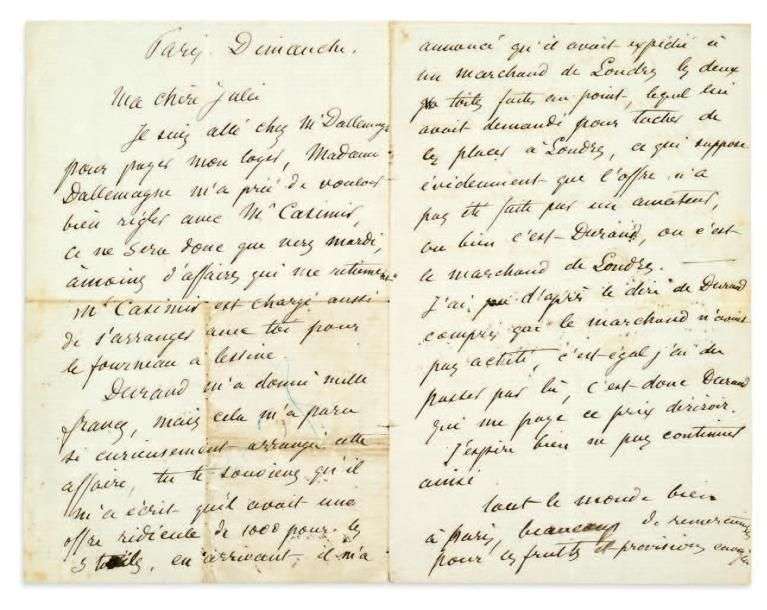 Paris. Dimanche.
Ma chère Julie
Je suis allé chez Mr Dallemagne
pour payer mon loyer, Madame
Dallemagne m'a prié de vouloir
bien régler avec Mr Casimir,
ce ne sera donc que vers mardi,
à moins d'affaires qui me retiennent
Mr Casimir est chargé aussi
de s'arranger avec toi pour
le fourneau à lessive
Durand m'a donné mille
francs, mais cela m'a paru
si curieusement arrangé cette
affaire, tu te souviens qu'il
m'a écrit qu'il avait une
offre ridicule de 1000 pour les
3 toiles, en arrivant, il m'a
annoncé qu'il avait expédié à
un marchand de Londres les deux
toiles faites au point, lequel lui
avait demandé pour tacher de
les placer à Londres, ce qui suppose
évidemment que l'offre n'a
pas été faite par un amateur,
ou bien c'est Durand, ou c'est
le marchand de Londres.
J'ai d'après le dire de Durand
compris que le marchand n'avait
pas acheté, c'est égal j'ai du
passer par là, c'est donc Durand
qui me paye ce prix dérisoir.
J'espère bien ne pas continuer
ainsi
tout le monde bien
à Paris, beaucoup de remerciements
pour les fruits et provisions